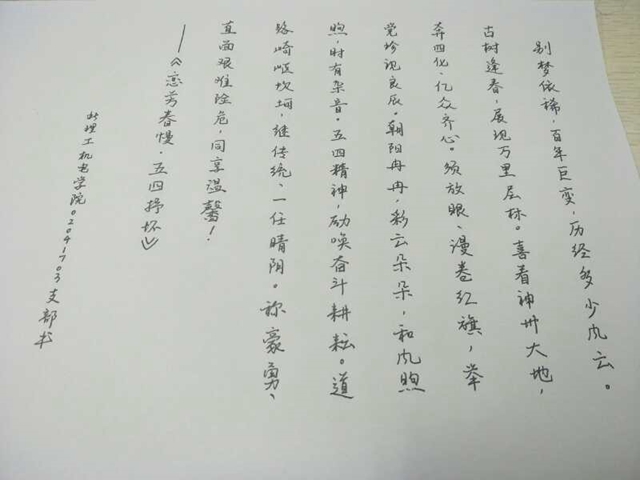 别梦依稀·百年巨变，历经多少风云。
古树逢春，展现万里层林。喜看神州大地，
奔四化、亿众齐心。须放眼、漫卷红旗，举
党珍视良辰。朝阳冉冉，彩云朵朵，和风煦
煦，时有杂音。五四精神，励唤奋斗耕耘。道
路崎岖坎坷，继传统、一任晴阴。称豪勇、
直面艰难险危，同享温馨！
——《恋芳春慢·五四抒怀》
北理工机电学院02041703支部书